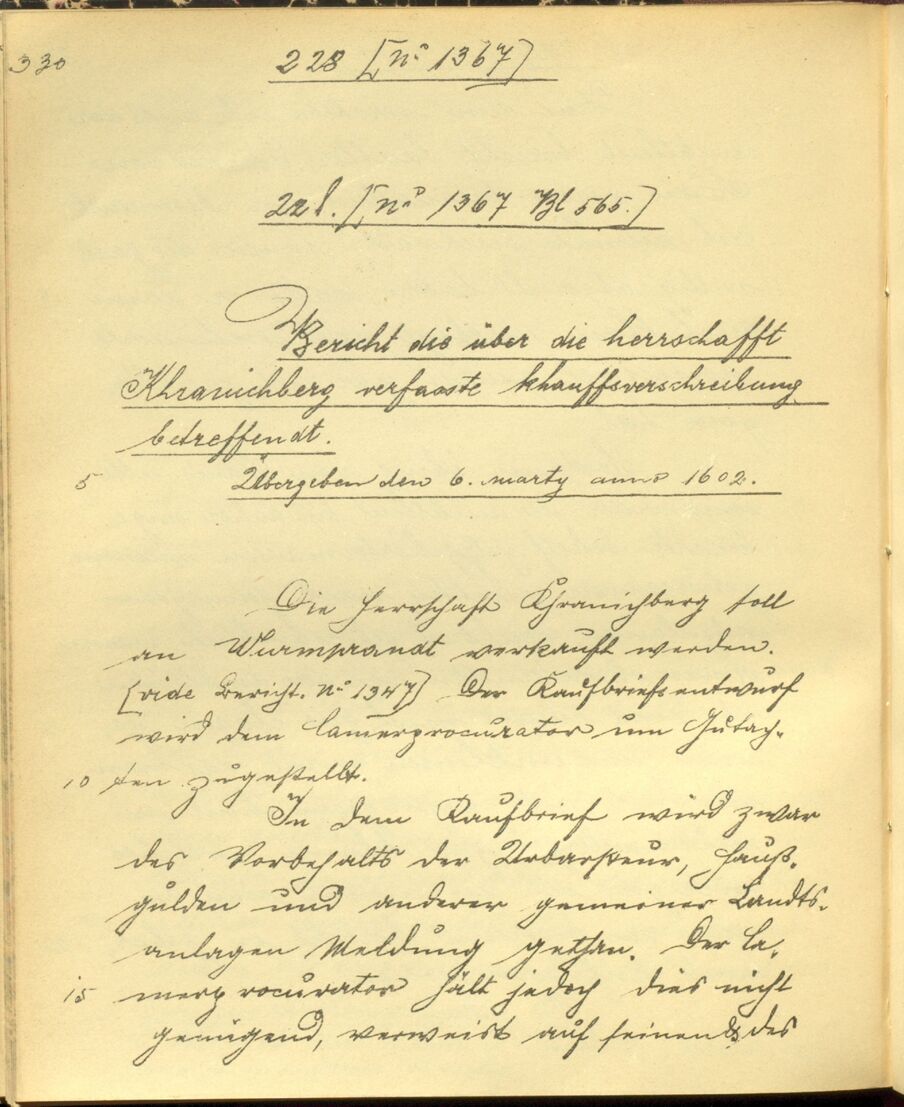 330
228 [No 1367]
228. [No 1367 Bl 565.]
Bericht die über die herrschafft
Khranichberg verfasste khauffsverschreibung
betreffendt.
5 Übergeben den 6. marty anno 1602.
Die Herrschaft Khranichberg soll
an Wurmprandt verkauft werden.
[vide Bericht. No 1347] Der Kaufbriefsentwurf
wird dem Camerprocurator um Gutach-
10 ten zugestellt.
In dem Kaufbrief wird zwar
des Vorbehalts der Urbarsteur, Hauß-
gulden und anderer gemeiner Landts-
anlagen Meldung gethan. Der Ca-
15 merprocurator hält jedoch dies nicht
genügend, verweist auf seinen des